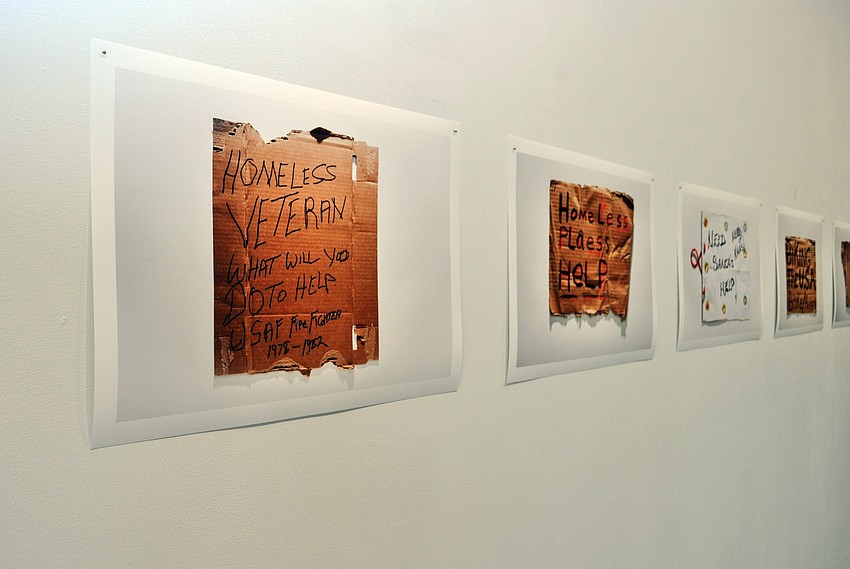 HOMELESS
VETERAN
WHAT WILL YOU
DO TO HELP
USAF FIRE FIGHTER
1978-1982
HOMELESS
PLAESS
HELP
NEED
HELP